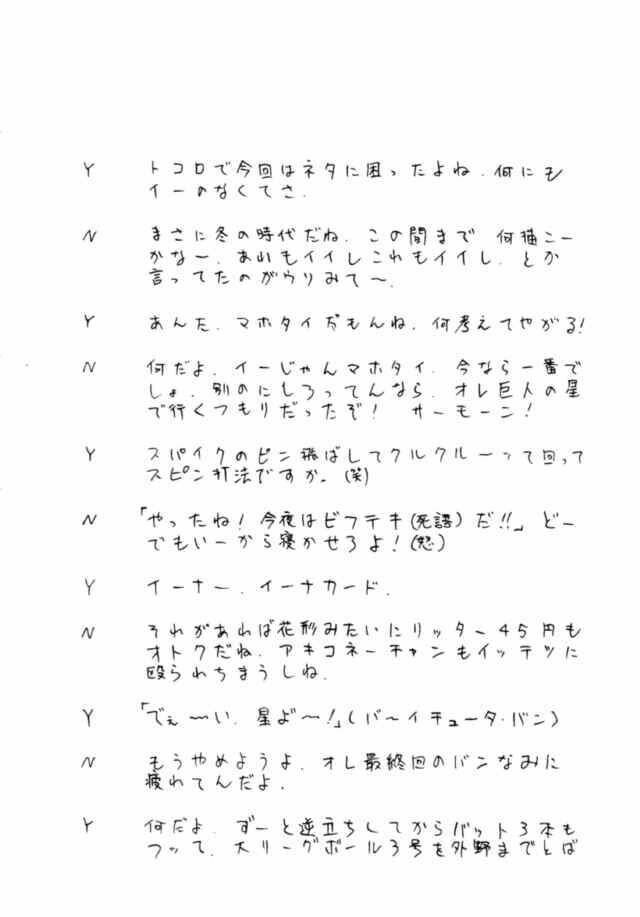 Y トコロで今回はネタに困ったよね.何にも
イーのなくてさ.
N まさに冬の時代だね.この間まで 何描こー
かな〜.あれもイイしこれもイイし.とか
言ってたのがウソみて〜.
Y あんた.マホタイだもんね.何考えてやがる!
N 何だよ.イーじゃんマホタイ.今なら一番で
しょ.別のにしろってんなら.オレ巨人の星
で行くつもりだったぞ! サーモーン!
Y スパイクのピン飛ばしてクルクルーって回って
スピン打法ですか。(笑)
N 「やったね!今夜はビフテキ(死語)だ!!」どー
でもいーから寝かせろよ!(怒)
Y イーナー.イーナカード.
N それがあれば花形みたいにリッター45円も
オトクだね.アキコネーチャンもイッテツに
殴られちまうしね.
Y 「でぇ〜〜い.星よ〜!」(バ〜イチュータ・バン)
N もうやめようよ.オレ最終回のバンなみに
疲れてんだよ.
Y 何だよ.ずーと逆立ちしてからバット3本も
フッて.大リーグボール3号を外野までとば